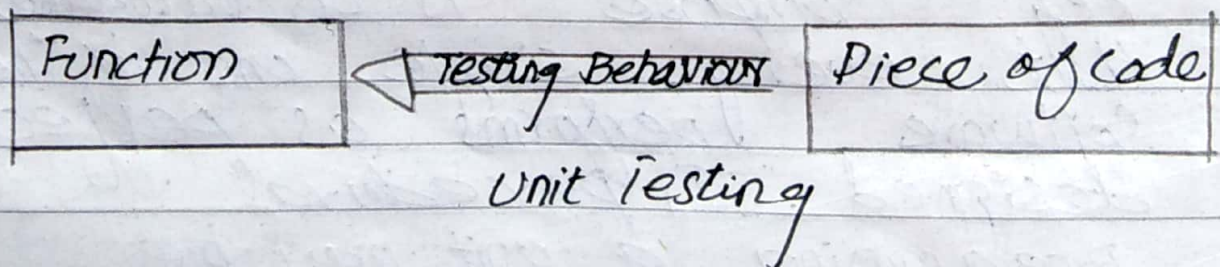 Function
Testing Behaviour
Piece of Code
Unit Testing